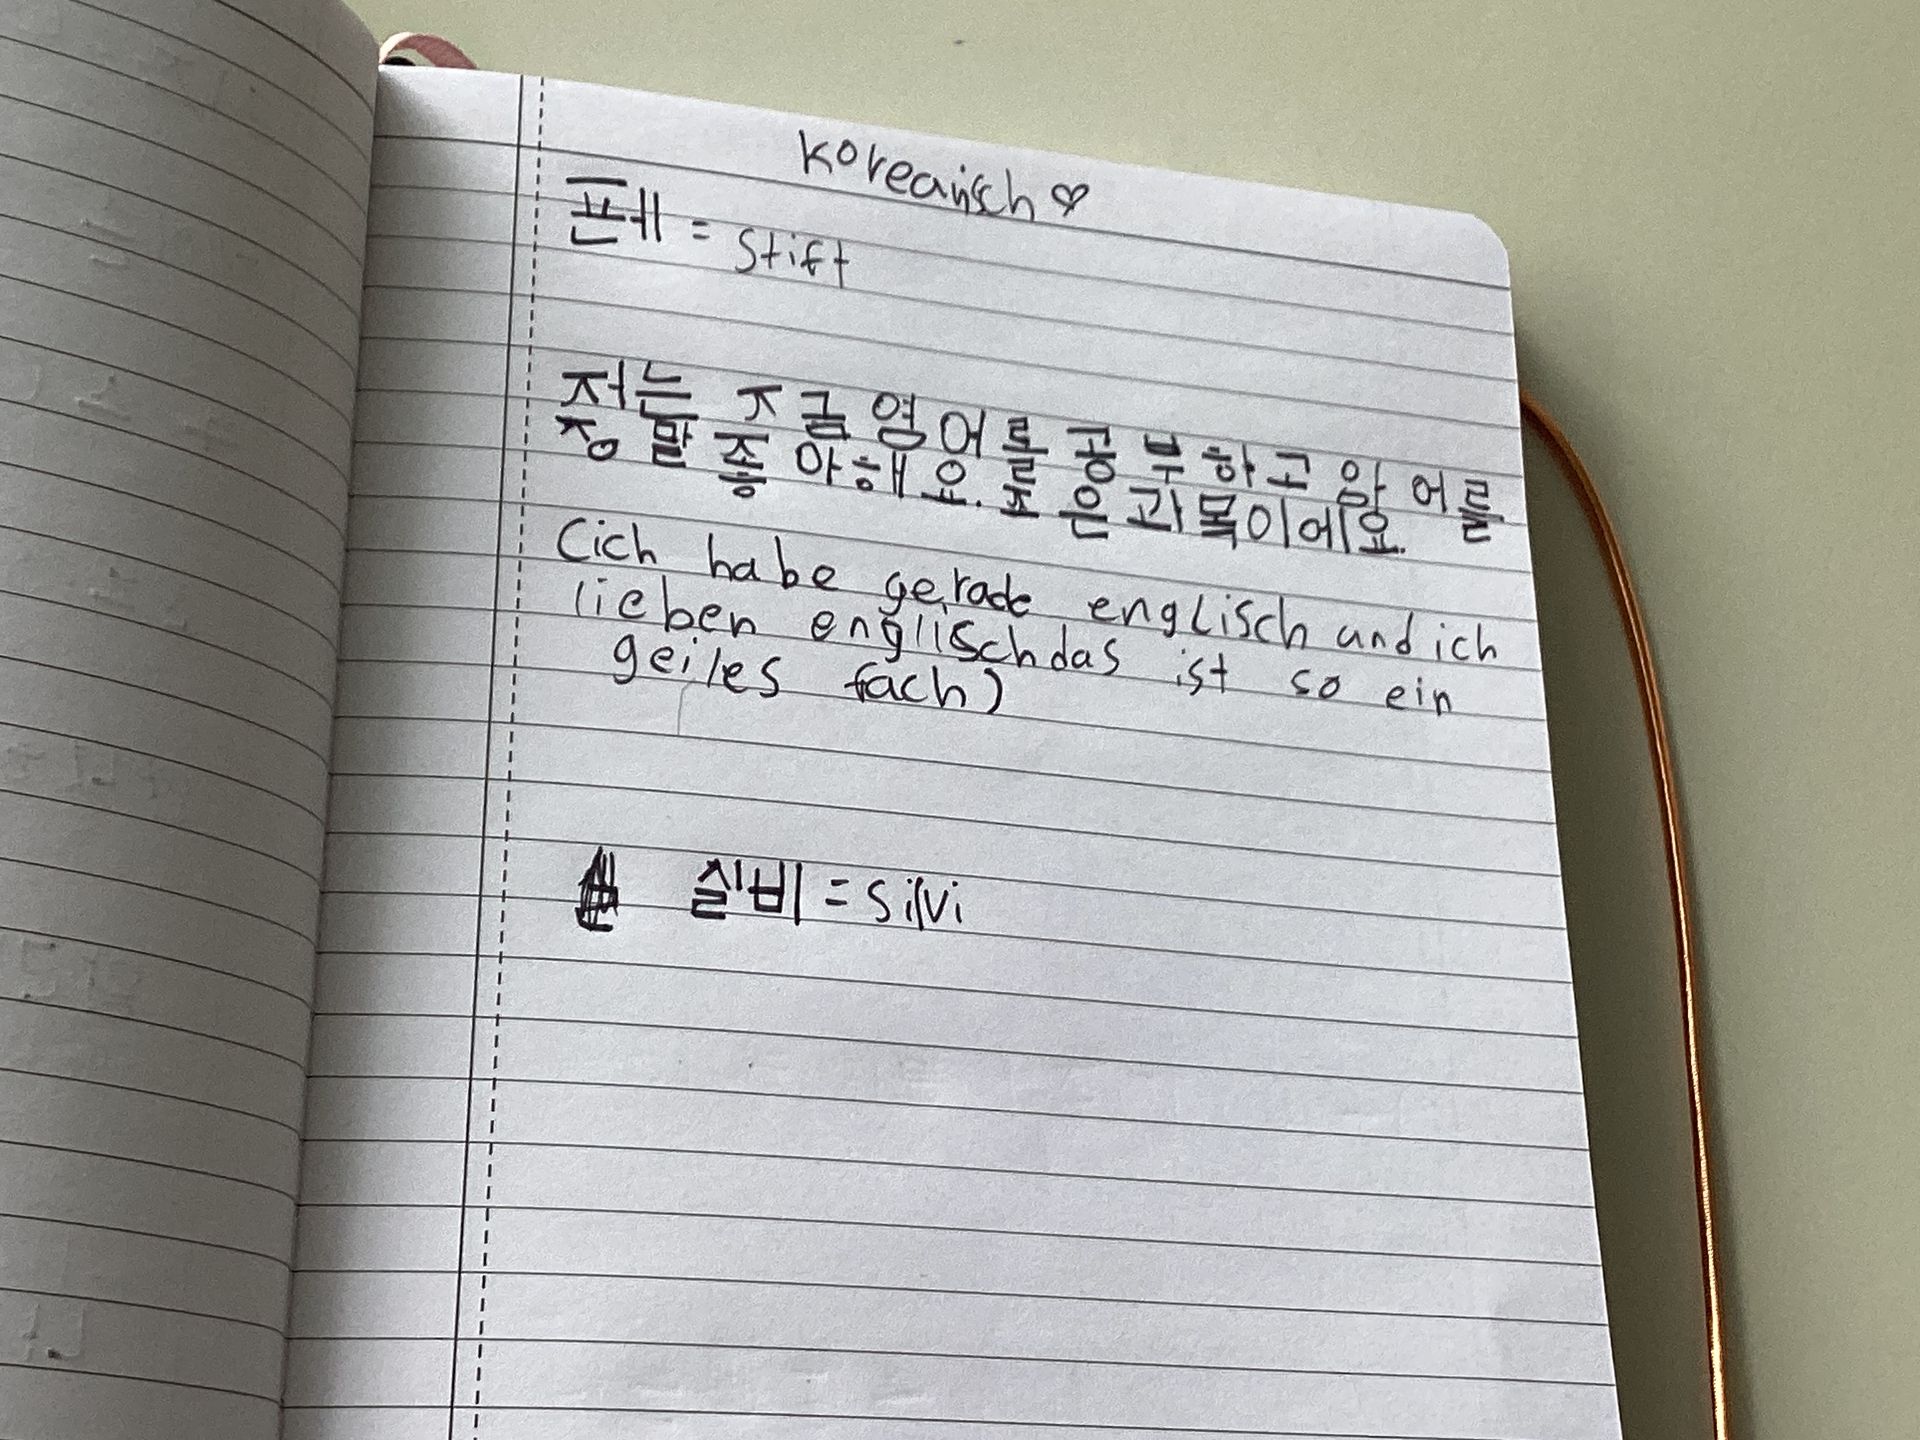 Koreanisch ♡
푠게 = Stift
저는 ㅈ금 영어를 공부하고 암어를
정말 좋아해요. 죠은 과목이에요.
(ich habe gerade englisch und ich
lieben englisch das ist so ein
geiles fach)
실비 = silvi